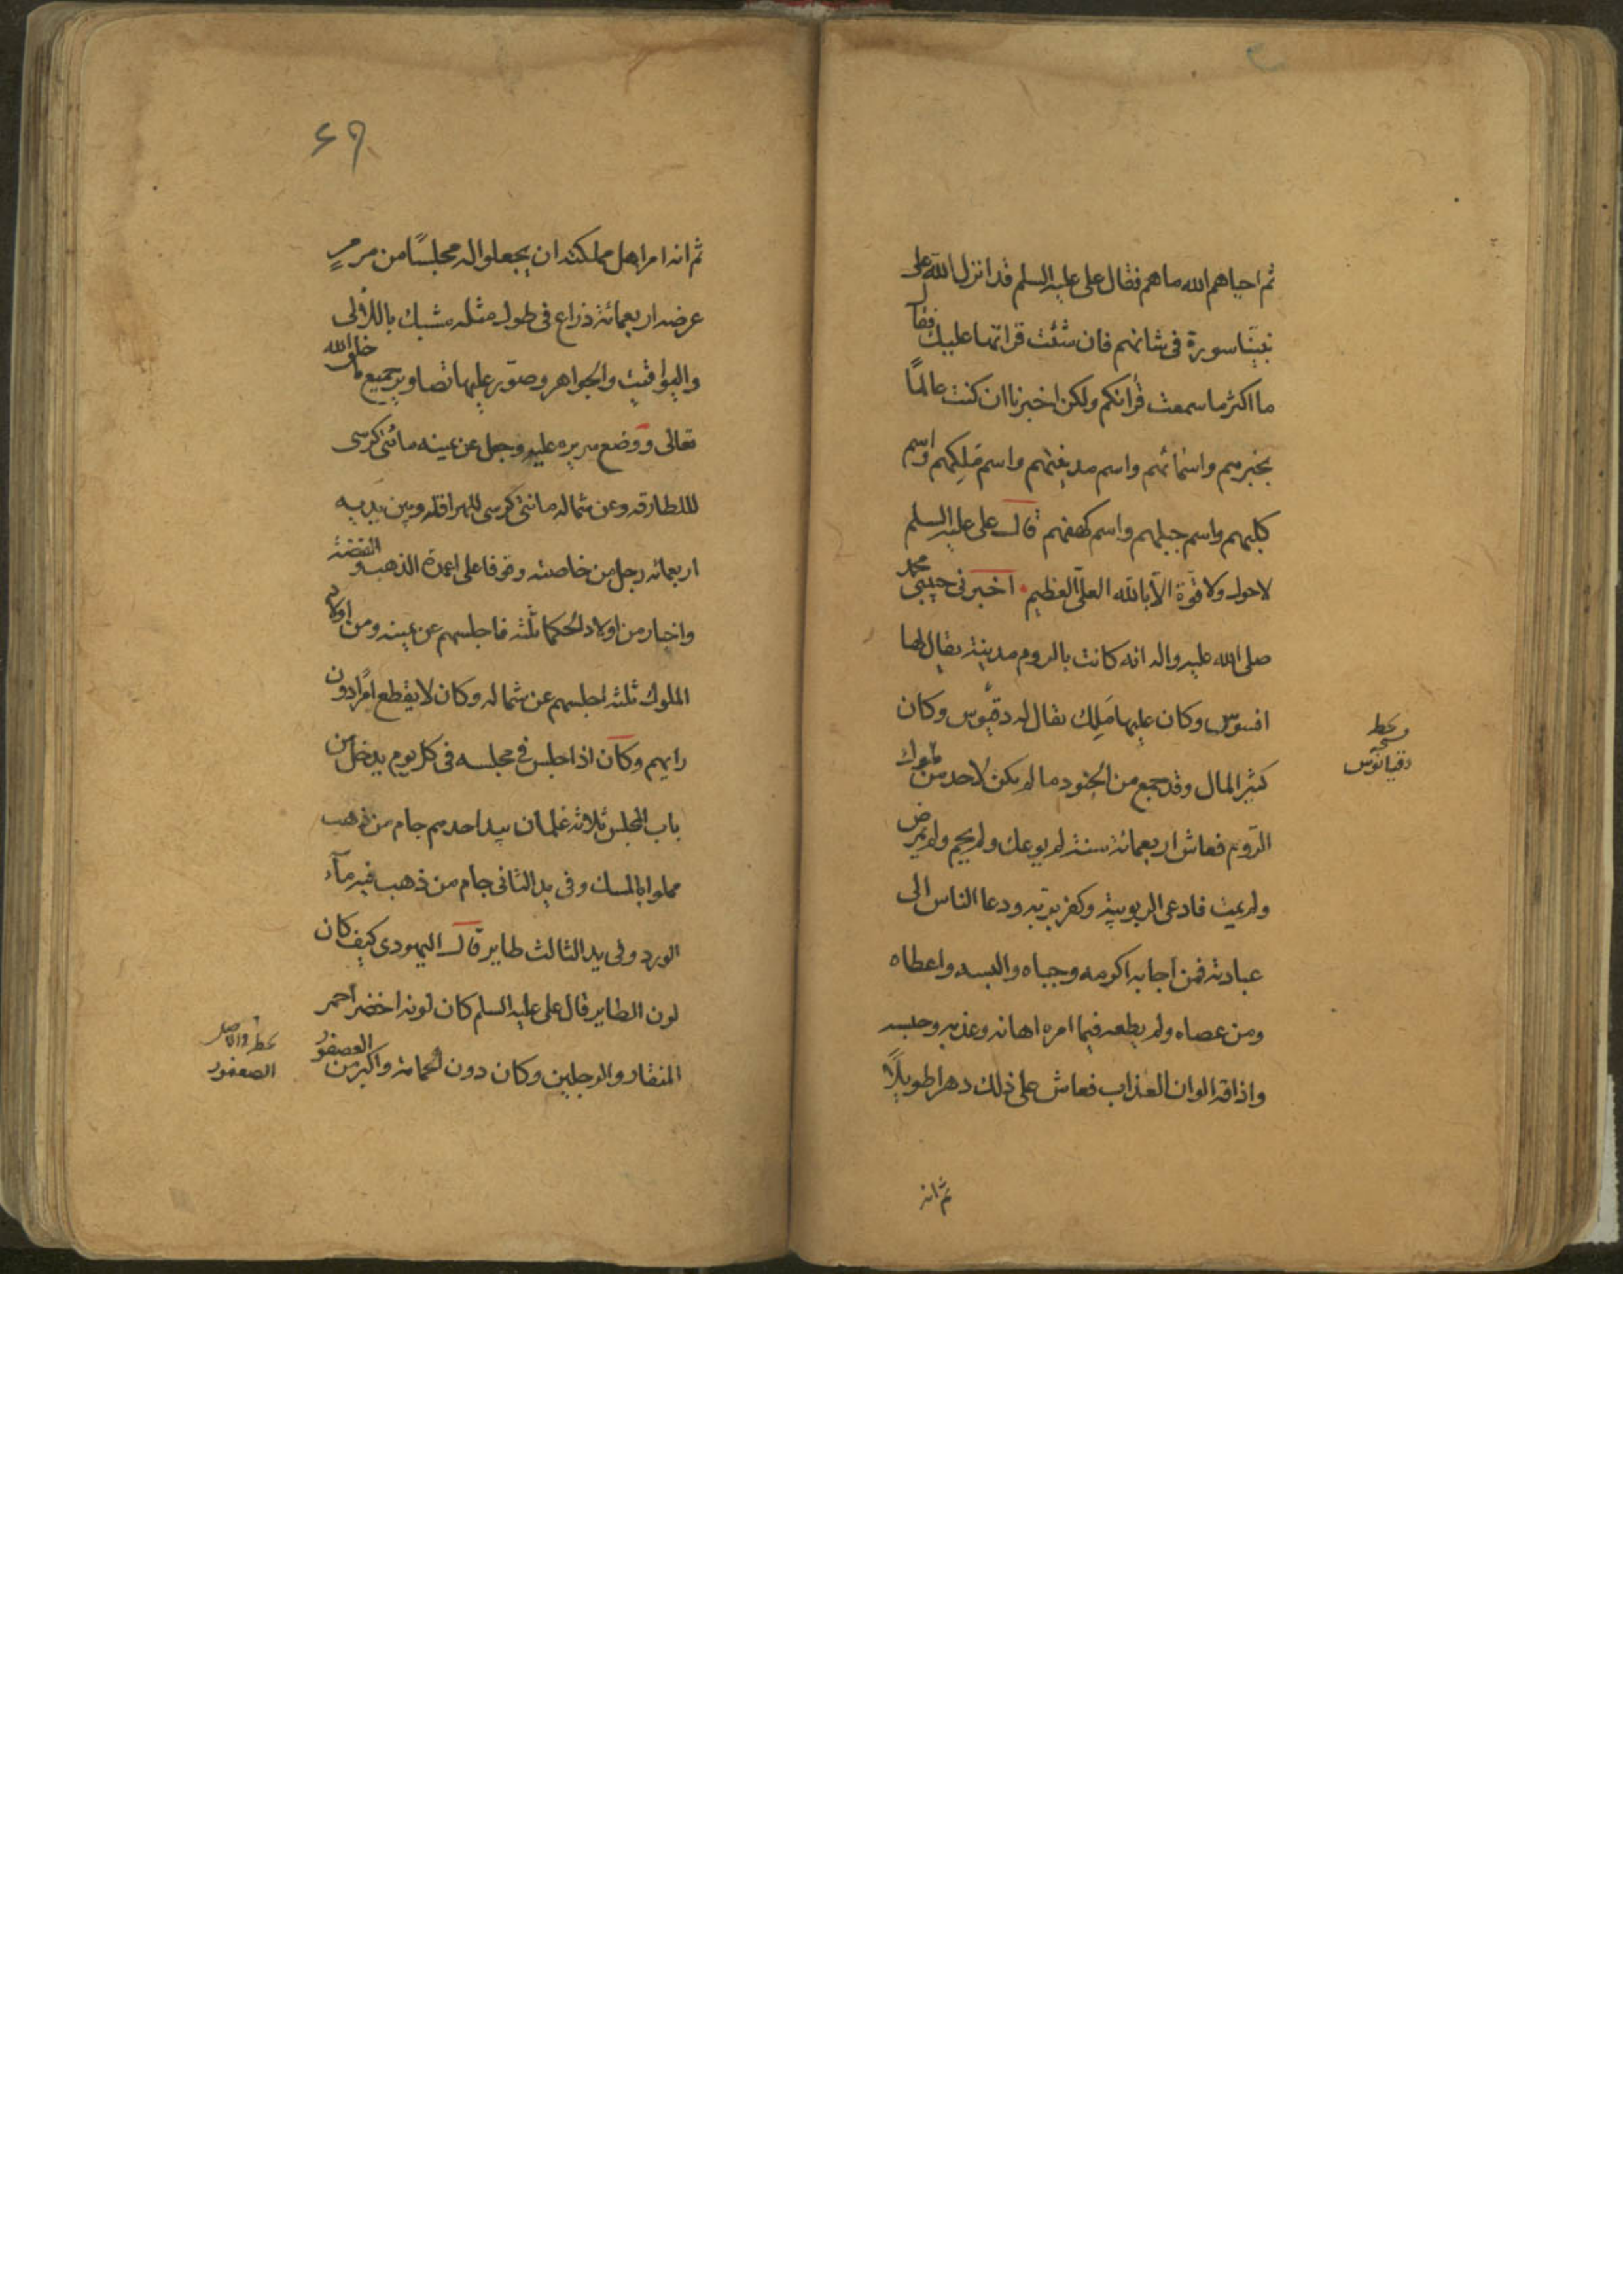 ثم احياهم الله ماهم فقال على عليه السلم قد انزل الله على
نبينا سورة فى شانهم فان شئت قراتها عليك فقال
ما اكثر ما سمعت قرآنكم ولكن اخبرنا ان كنت عالمًا
بخبرهم واسمائهم واسم مدينتهم واسم مَلِكهم واسم
كلبهم واسم جبلهم واسم كهفهم قال على عليه السلم
لاحول ولا قوّة الّا بالله العلىّ العظيم اخبرنى حبيبى محمد
صلى الله عليه واله انه كانت بالروم مدينة يقال لها
افسوس وكان عليها مَلِك يقال له دقيوس وكان
كثير المال وقد جمع من الجنود ما لم يكن لاحد من ملوك
الرّوم فعاش اربعمائة سنة لم يوعك ولم يحم ولم يمرض
ولم يمت فادعى الربوبية وكفر بربه ودعا الناس الى
عبادته فمن اجابه اكرمه وحباه والبسه واعطاه
ومن عصاه ولم يطعه فيما امره اهانه وعذبه وحبسه
واذاقه الوان العذاب فعاش على ذلك دهرا طويلًا
ثم انه
بخط
دقيانوس
۶۹
ثم انه امر اهل مملكته ان يجعلوا له مجلسًا من مرمرٍ
عرضه اربعمائة ذراع فى طول مثله مشبك باللؤلؤ
واليواقيت والجواهر وصوّر عليها تصاوير جميع ما خلق الله
تعالى ووضع سريره عليه وجعل عن يمينه مائتى كرسى
للبطارقه وعن شماله مائتى كرسى للهراقله وبين يديه
اربعمائه رجل من خاصته وقوفا على اعمدة الذهب والفضة
واختار من اولاد الحكما ثلثه فاجلسهم عن يمينه ومن اولاد
الملوك ثلثه اجلسهم عن شماله وكان لا يقطع امرًا دون
رايهم وكان اذا جلس فى مجلسه فى كل يوم يدخل من
باب المجلس ثلاثه غلمان بيد احدهم جام من ذهب
مملوا بالمسك وفى يد الثانى جام من ذهب فيه مآء
الورد وفى يد الثالث طاير قال اليهودى كيف كان
لون الطاير قال على عليه السلم كان لونه اخضر احمر
المنقار والرجلين وكان دون الحمامة واكبر من العصفور
الصعفور